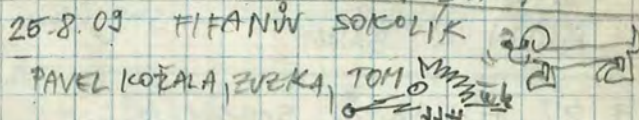 25.8.09 FIFANŮV SOKOLÍK
PAVEL KOŽALA, ZUZKA, TOM